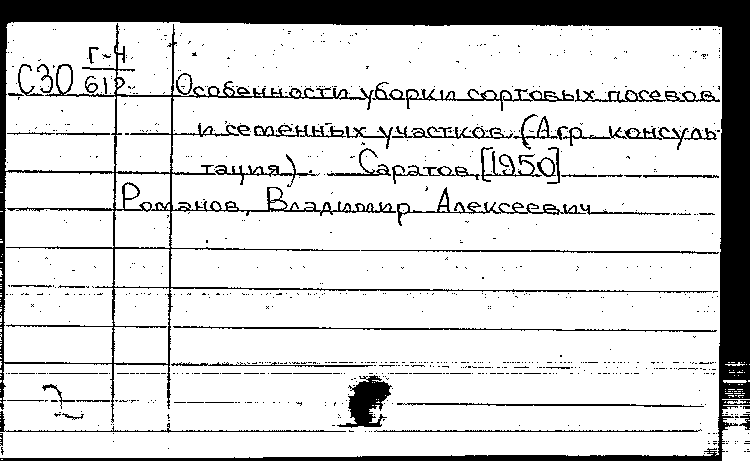 Г-4
С30 612
Особенности уборки сортовых посевов
и семенных участков. (Агр. консуль-
тация). Саратов, [1950]
Романов, Владимир Алексеевич
2